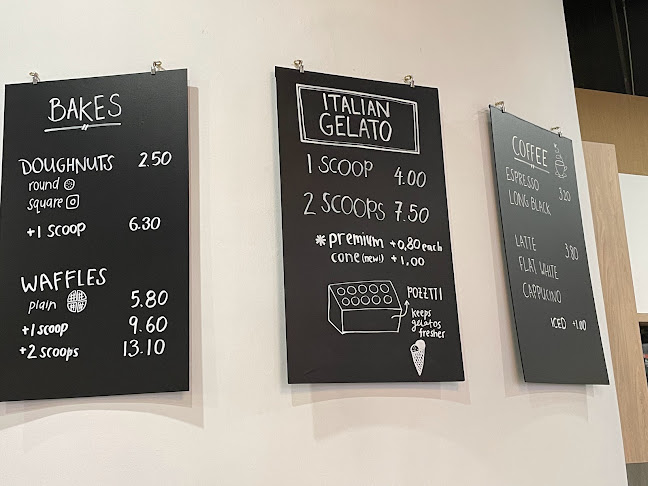 BAKES
DOUGHNUTS 2.50
round
square
+1 SCOOP 6.30
WAFFLES
plain 5.80
+1 scoop 9.60
+2 scoops 13.10
ITALIAN
GELATO
1 SCOOP 4.00
2 SCOOPS 7.50
* premium +0.80 each
cone (new!) +1.00
POZZTTI
keeps
gelatos
fresher
COFFEE
ESPRESSO 3.20
LONG BLACK
LATTE 3.80
FLAT WHITE
CAPPUCINO
ICED +1.00